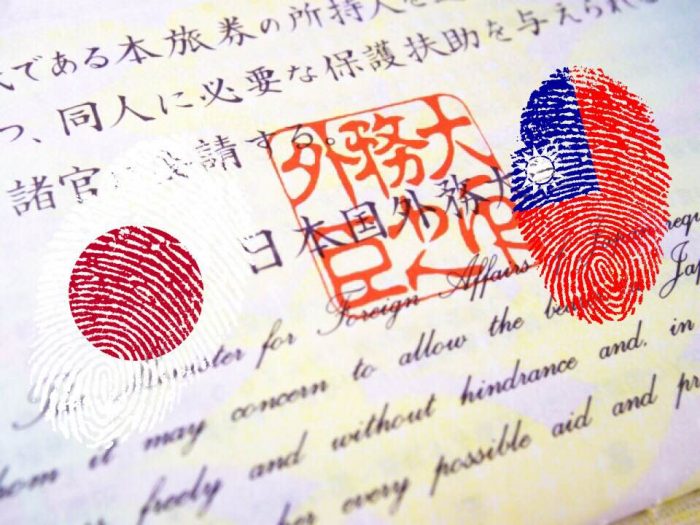 である本旅券の所持人を
つ、同人に必要な保護扶助を与えられ
諸官 請する。
外務大
日本国外務大
for Foreign Affairs Japan requ
hom it may concern to allow the Jap
freely and without hindrance and, in
her every possible aid and pr